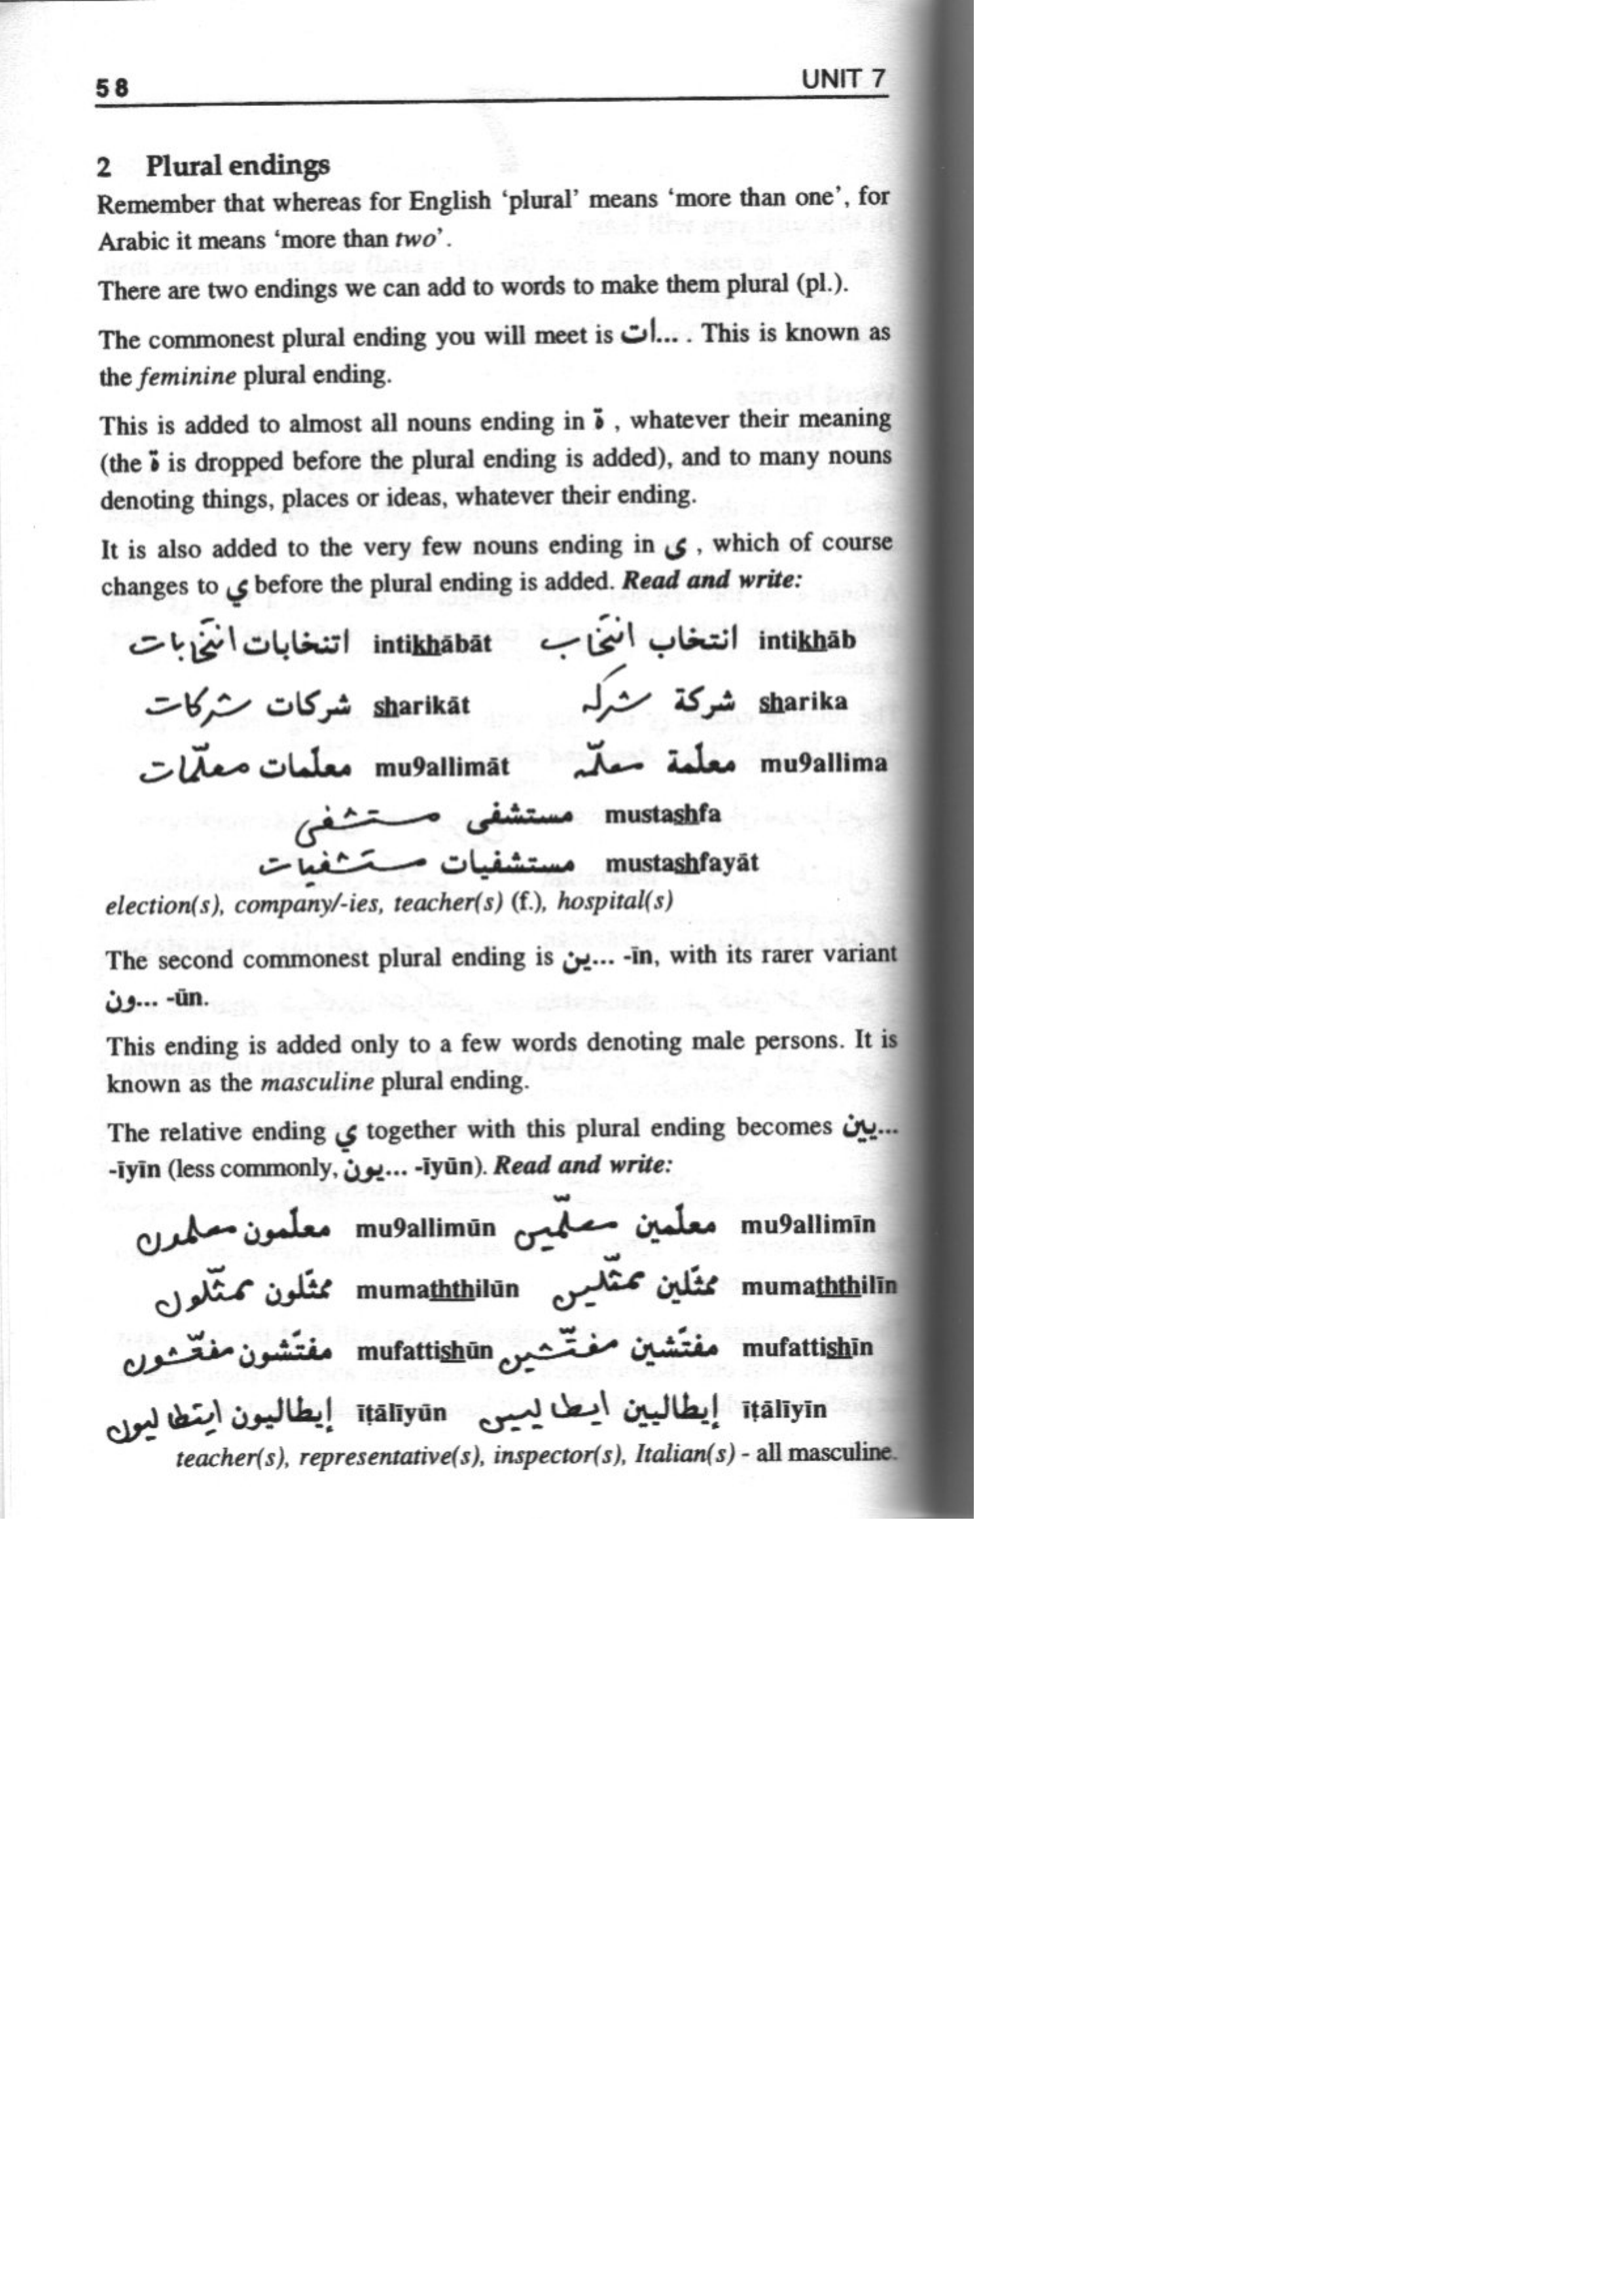 58
UNIT 7
2 Plural endings
Remember that whereas for English ‘plural’ means ‘more than one’, for
Arabic it means ‘more than two’.
There are two endings we can add to words to make them plural (pl.).
The commonest plural ending you will meet is ...ات . This is known as
the feminine plural ending.
This is added to almost all nouns ending in ة , whatever their meaning
(the ة is dropped before the plural ending is added), and to many nouns
denoting things, places or ideas, whatever their ending.
It is also added to the very few nouns ending in ى , which of course
changes to ي before the plural ending is added. Read and write:
intikhāb انتخاب انتخاب intikhābāt اتنخابات انتخابات
sharika شركة شركة sharikāt شركات شركات
mu9allima معلّمة معلّمة mu9allimāt معلّمات معلّمات
mustashfa مستشفى مستشفى
mustashfayāt مستشفيات مستشفيات
election(s), company/-ies, teacher(s) (f.), hospital(s)
The second commonest plural ending is ...ين -īn, with its rarer variant
...ون -ūn.
This ending is added only to a few words denoting male persons. It is
known as the masculine plural ending.
The relative ending ي together with this plural ending becomes ...يين
-īyīn (less commonly, ...يون -īyūn). Read and write:
mu9allimīn معلّمين معلّمين mu9allimūn معلّمون معلمون
mumaththilīn ممثّلين ممثّلين mumaththilūn ممثّلون ممثّلون
mufattishīn مفتّشين مفتّشين mufattishūn مفتّشون مفتّشون
īṭālīyīn إيطاليين ايطاليين īṭālīyūn إيطاليون ايطاليون
teacher(s), representative(s), inspector(s), Italian(s) - all masculine.